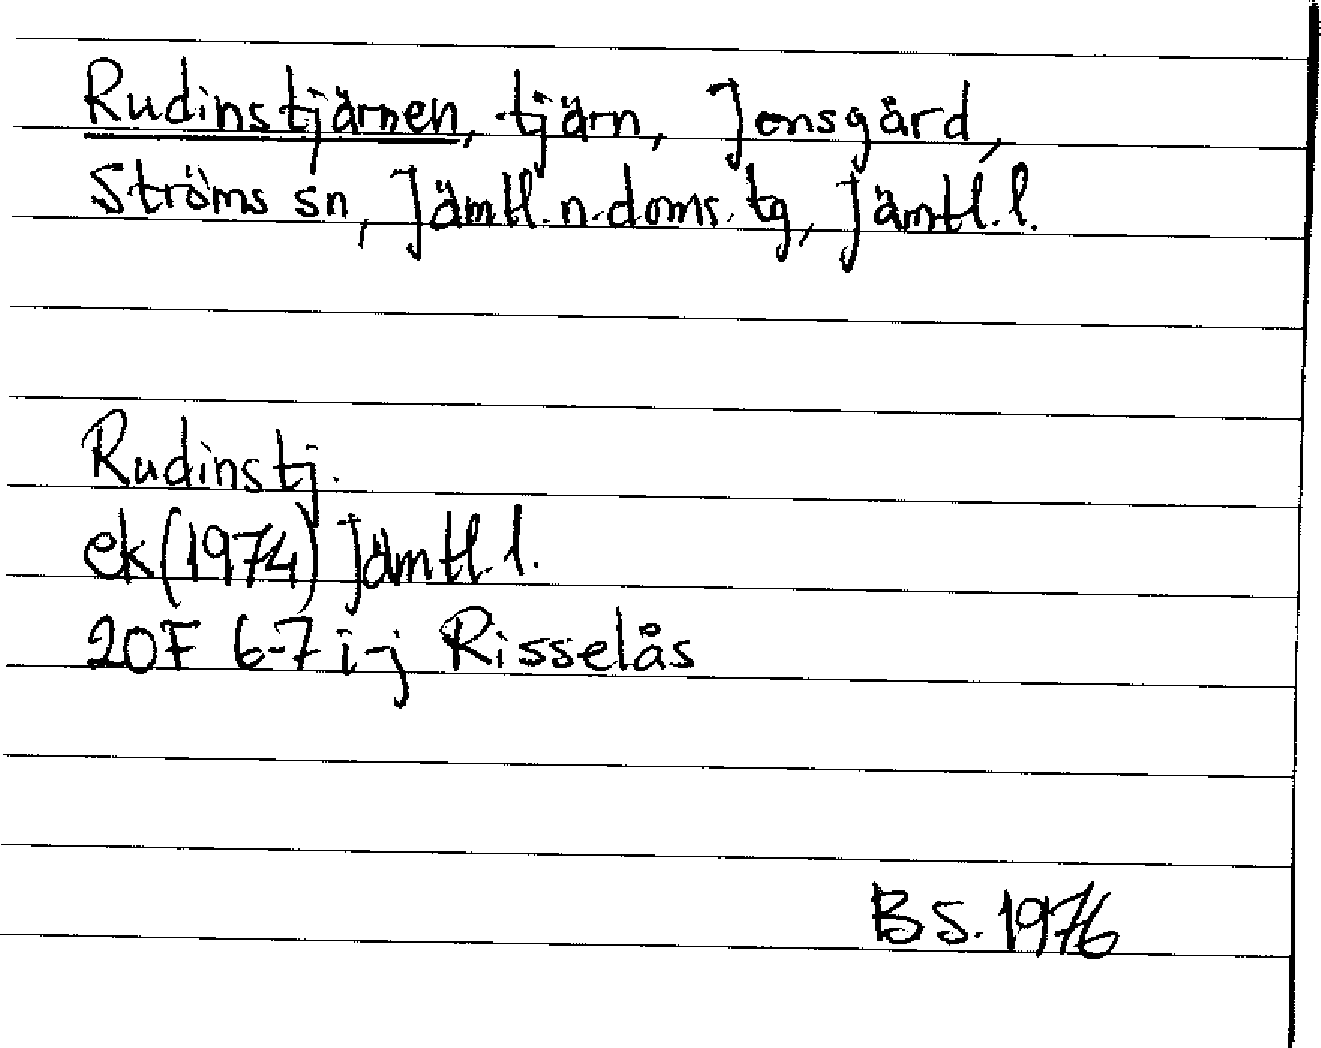 Rudinstjärnen, tjärn, Jonsgård,
Ströms sn, Jämtl. n. doms. tg, Jämtl. l.
Rudinstj.
ek (1974) Jämtl. l.
20F 6-7 i-j Risselås
BS. 1976